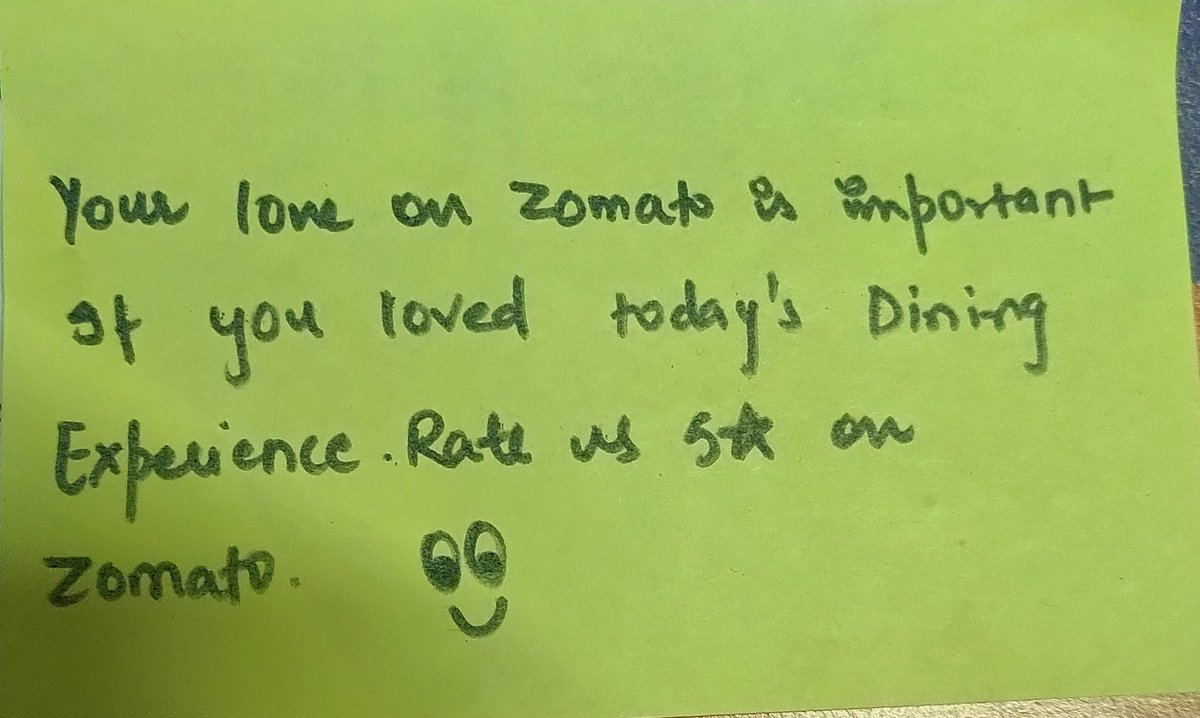 Your love on Zomato is important
If you loved today's Dining
Experience. Rate us 5★ on
Zomato.